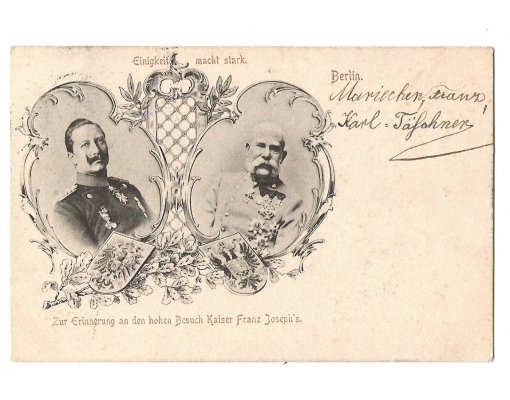 Einigkeit macht stark.
Berlin.
Marischen, Franz,
Karl - Täschner
Zur Erinnerung an den hohen Besuch Kaiser Franz Joseph's.